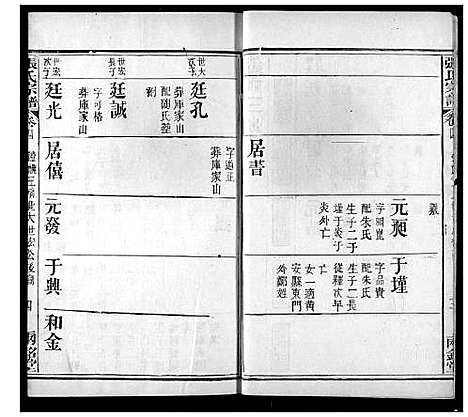 張氏宗譜
卷四
居書
元昶
字開寬
配朱氏
生子二于
瑾于炎于
炎外亡
于瑾
字品貴
配朱氏
生子二長
從釋次早
亡
女一適黄
安縣東門
外鄒姓
兩金堂
世大
次子
廷孔
字道正
葬庫家山
世宏
長子
廷誠
葬庫家山
配劉氏
世宏
次子
廷光
字可格
葬庫家山
居僖
元發
于興
和金
張氏宗譜
卷四
世大世宏公
四
兩銘堂